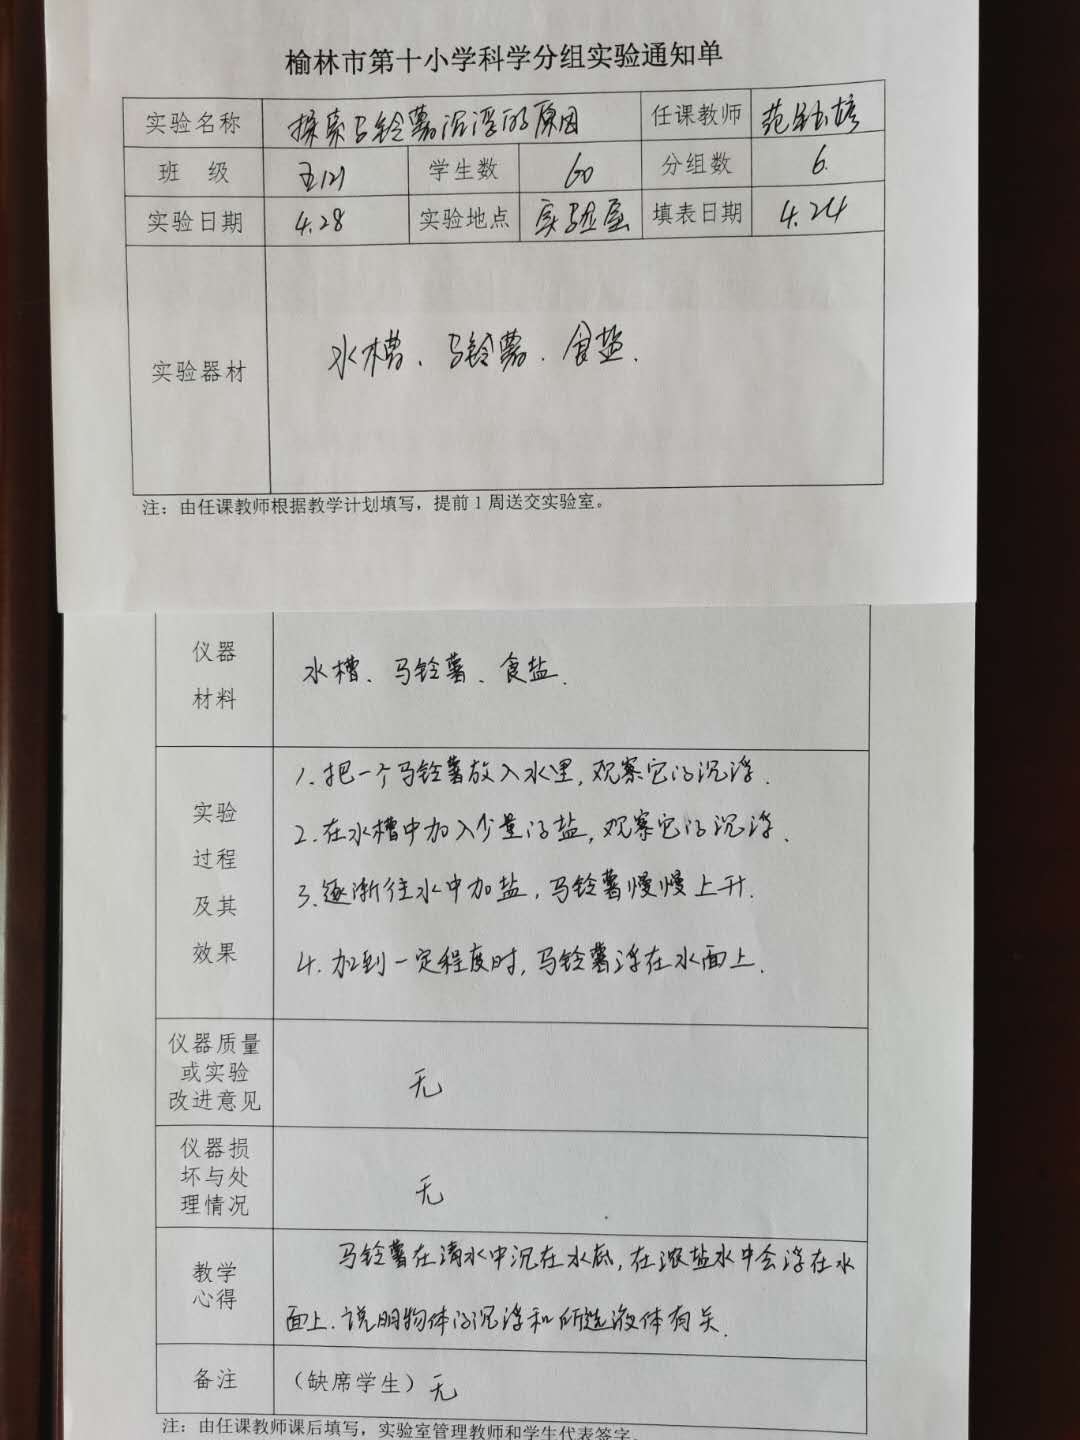 榆林市第十小学科学分组实验通知单
实验名称 探索马铃薯沉浮的原因 任课教师 范
班 级 五(2) 学生数 60 分组数 6.
实验日期 4.28 实验地点 实验室 填表日期 4.24
实验器材 水槽、马铃薯、食盐.
注：由任课教师根据教学计划填写，提前1周送交实验室。
仪器
材料
水槽、马铃薯、食盐.
实验
过程
及其
效果
1.把一个马铃薯放入水里,观察它的沉浮.
2.在水槽中加入少量的盐,观察它的沉浮.
3.逐渐往水中加盐,马铃薯慢慢上升.
4.加到一定程度时,马铃薯浮在水面上.
仪器质量
或实验
改进意见
无
仪器损
坏与处
理情况
无
教学
心得
马铃薯在清水中沉在水底,在浓盐水中会浮在水
面上.说明物体的沉浮和所选液体有关.
备注 (缺席学生) 无
注：由任课教师课后填写，实验室管理教师和学生代表签字。